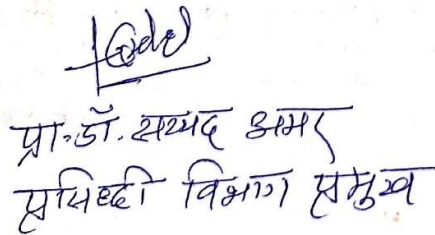 प्रा.डॉ. सय्यद अमर
प्रसिध्दी विभाग प्रमुख